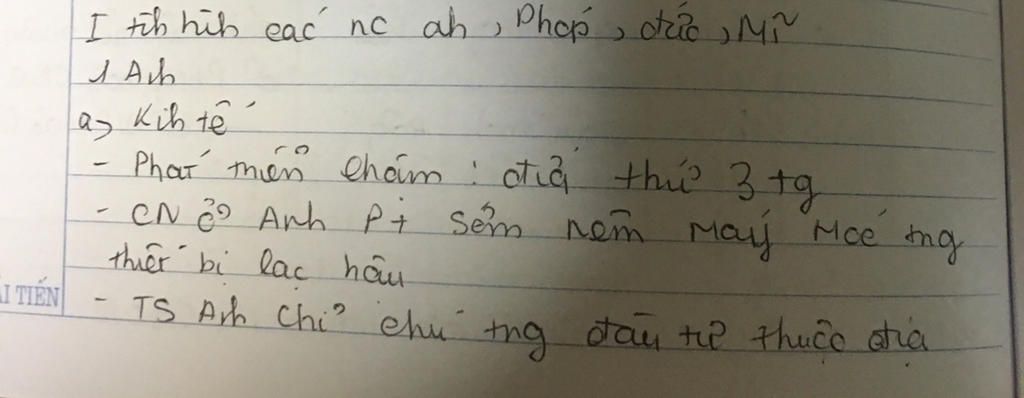 I tình hình các nc anh, Pháp, đức, Mĩ
1 Anh
a> Kinh tế
- Phát miển chậm : đứ thứ 3 tg
- CN ở Anh Pt sớm nên Máy Móc mg
thiết bị lạc hậu
ẢI TIẾN
- TS Anh chỉ chú tng đầu tư thuộc địa